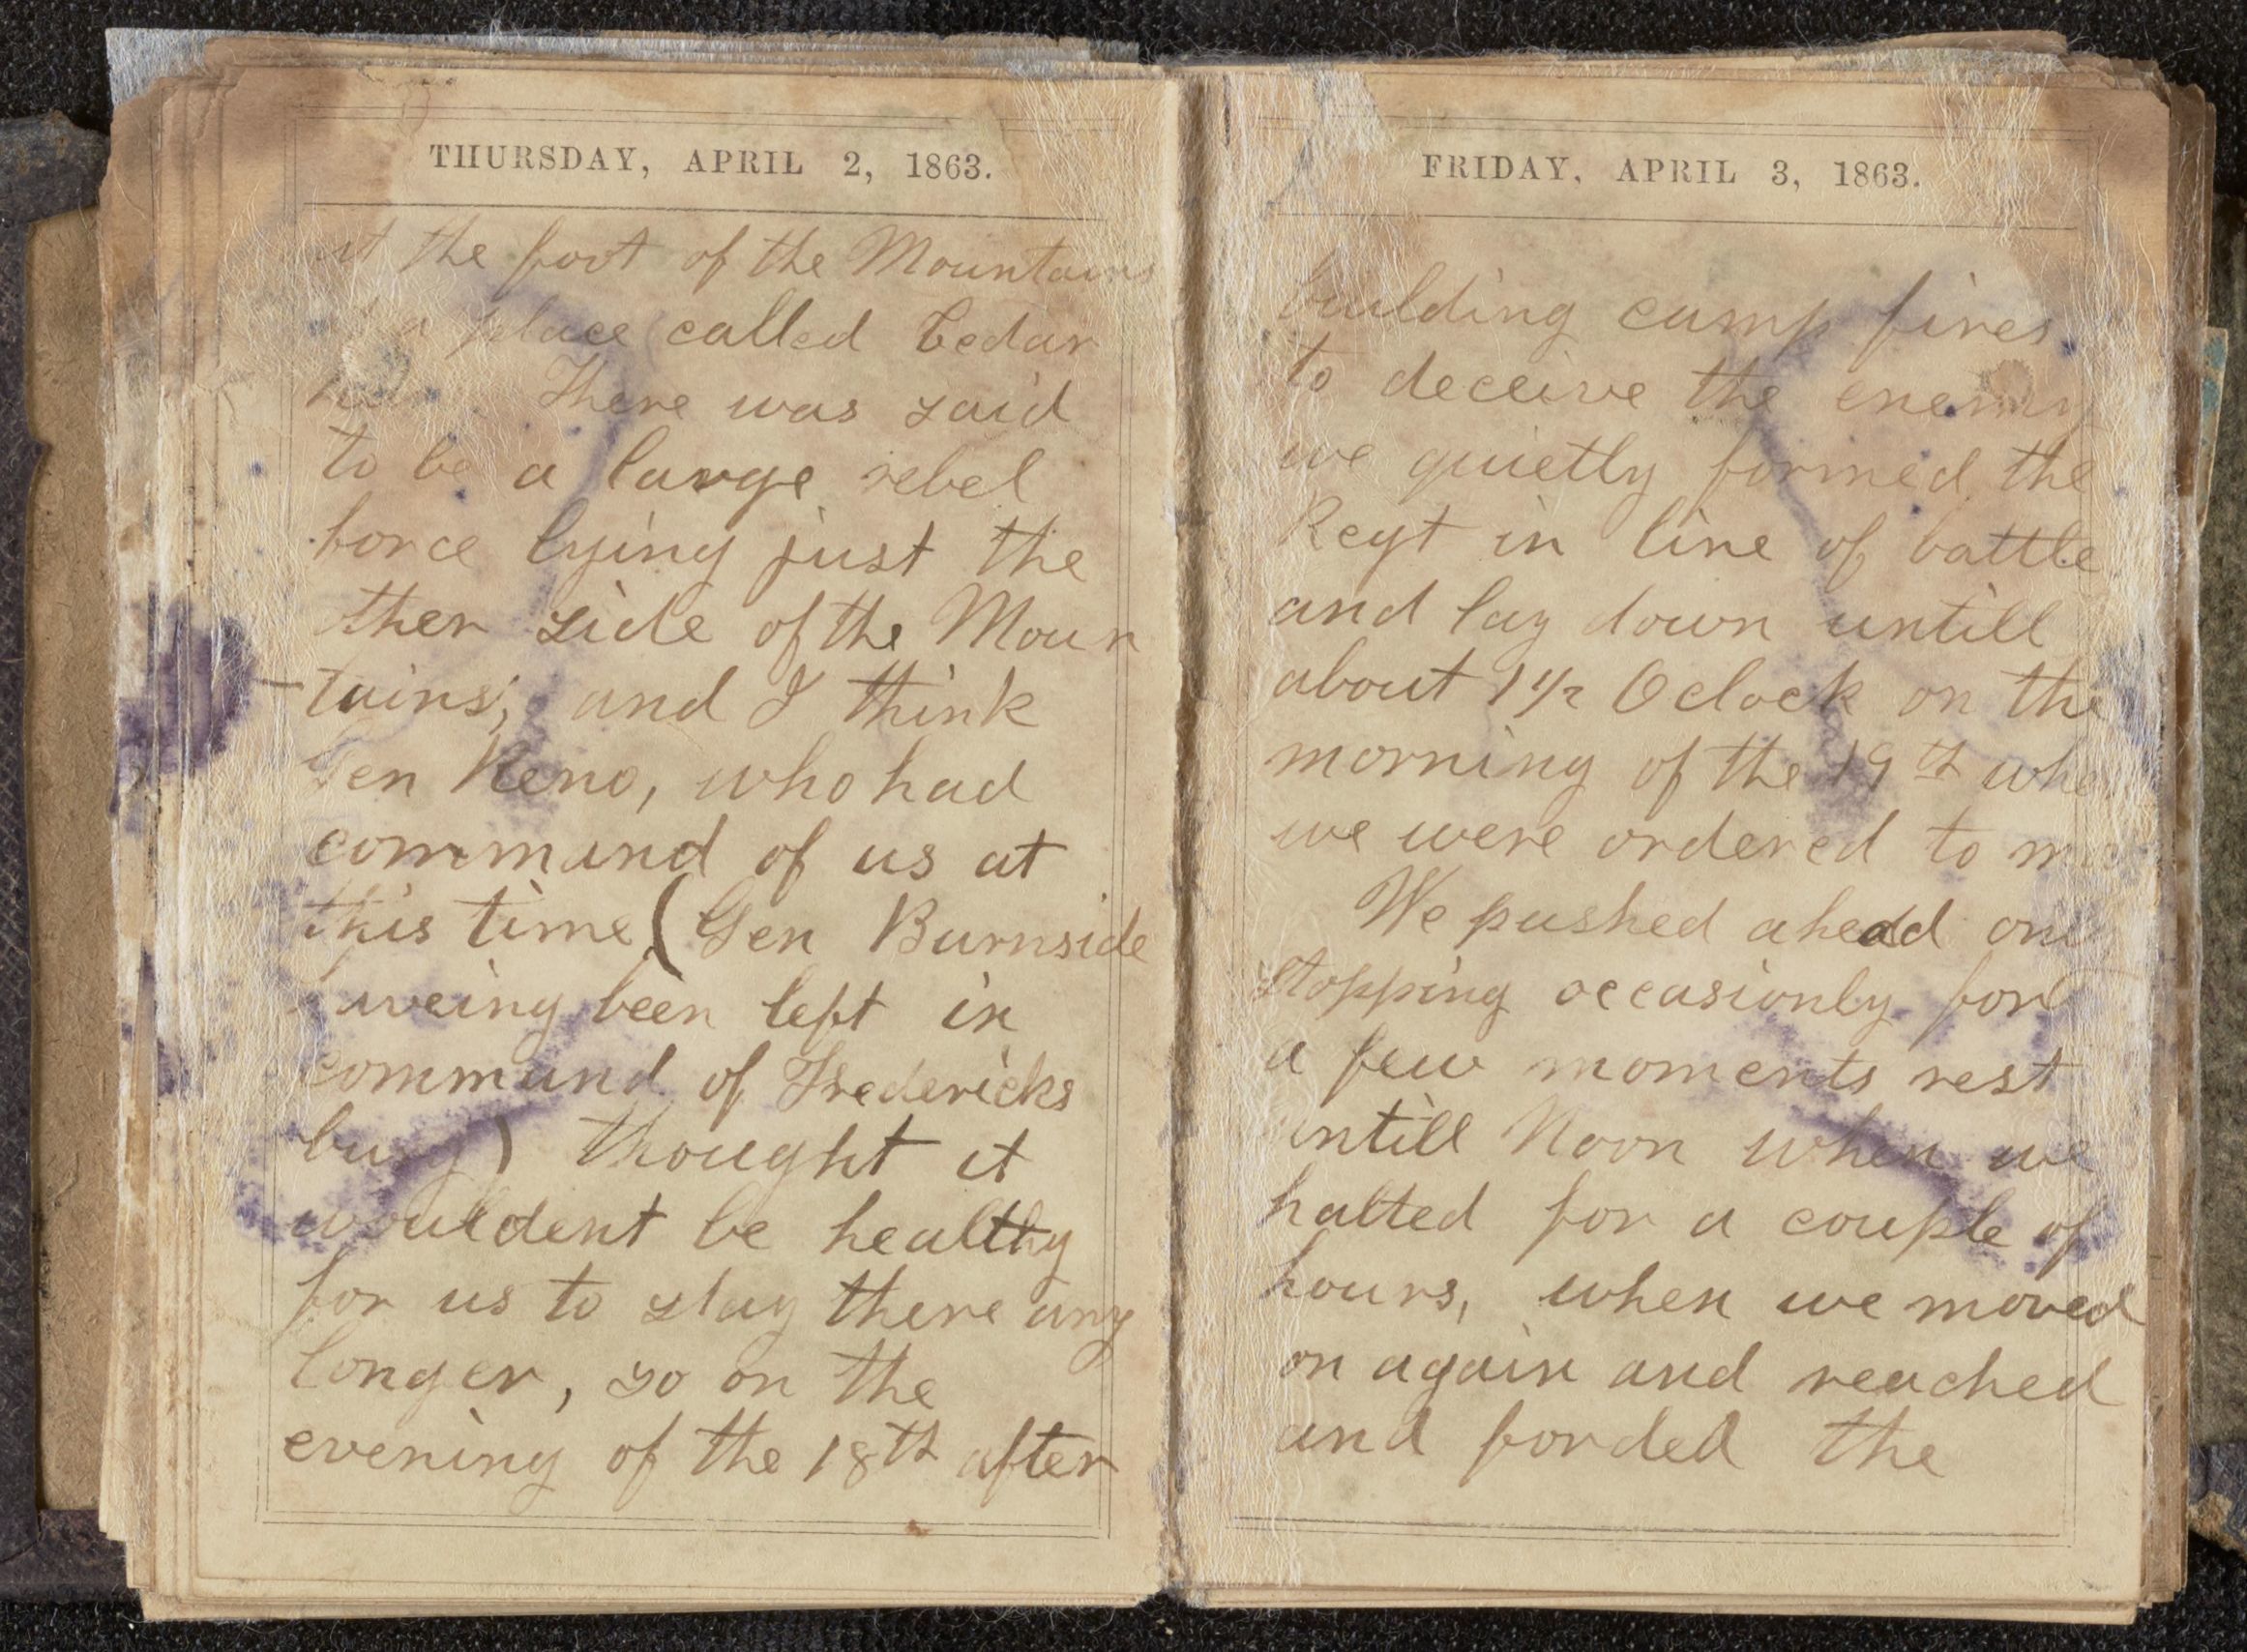 THURSDAY, APRIL 2, 1863.
at the foot of the Mountains
a place called Cedar
There was said
to be a large rebel
force lying just the
ther side of the Moun
-tains; and I think
Gen Reno, who had
command of us at
this time (Gen Burnside
haveing been left in
command of Fredericks
burg) thought it
wouldent be healthy
for us to stay there any
longer, so on the
evening of the 18th after
FRIDAY, APRIL 3, 1863.
building camp fires
to deceive the enemy
we quietly formed the
Regt in line of battle
and lay down untill
about 1 1/2 Oclock on the
morning of the 19th when
we were ordered to
We pushed ahead
stopping occasionly for
a few moments rest
untill Noon when we
halted for a couple of
hours, when we moved
on again and reached
and forded the